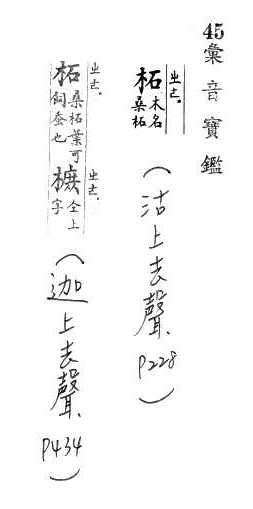 45彙音寶鑑
ㄓㄜ.
柘木名桑柘
(沽上去聲.P228)
ㄓㄜ.
柘桑柘葉可飼蚕也
ㄓㄜ.
樜仝上字
(迦上去聲.P434)